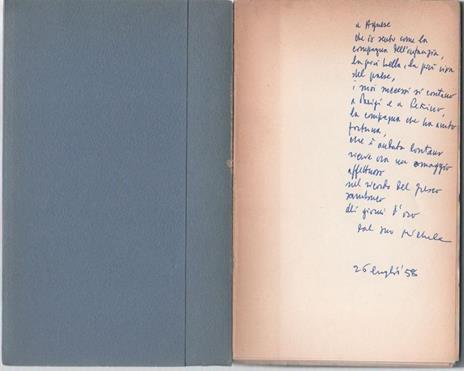 a Agnese
che io sento come la
compagna dell'infanzia,
la più bella, la più viva
del paese,
i suoi successi si contano
a Parigi e a Pekino,
la compagna che ha avuto
fortuna,
che è andata lontano
riceve ora un omaggio
affettuoso
nel ricordo del fresco
sambuco
dei giorni d'oro
dal suo Michele
26 luglio 58